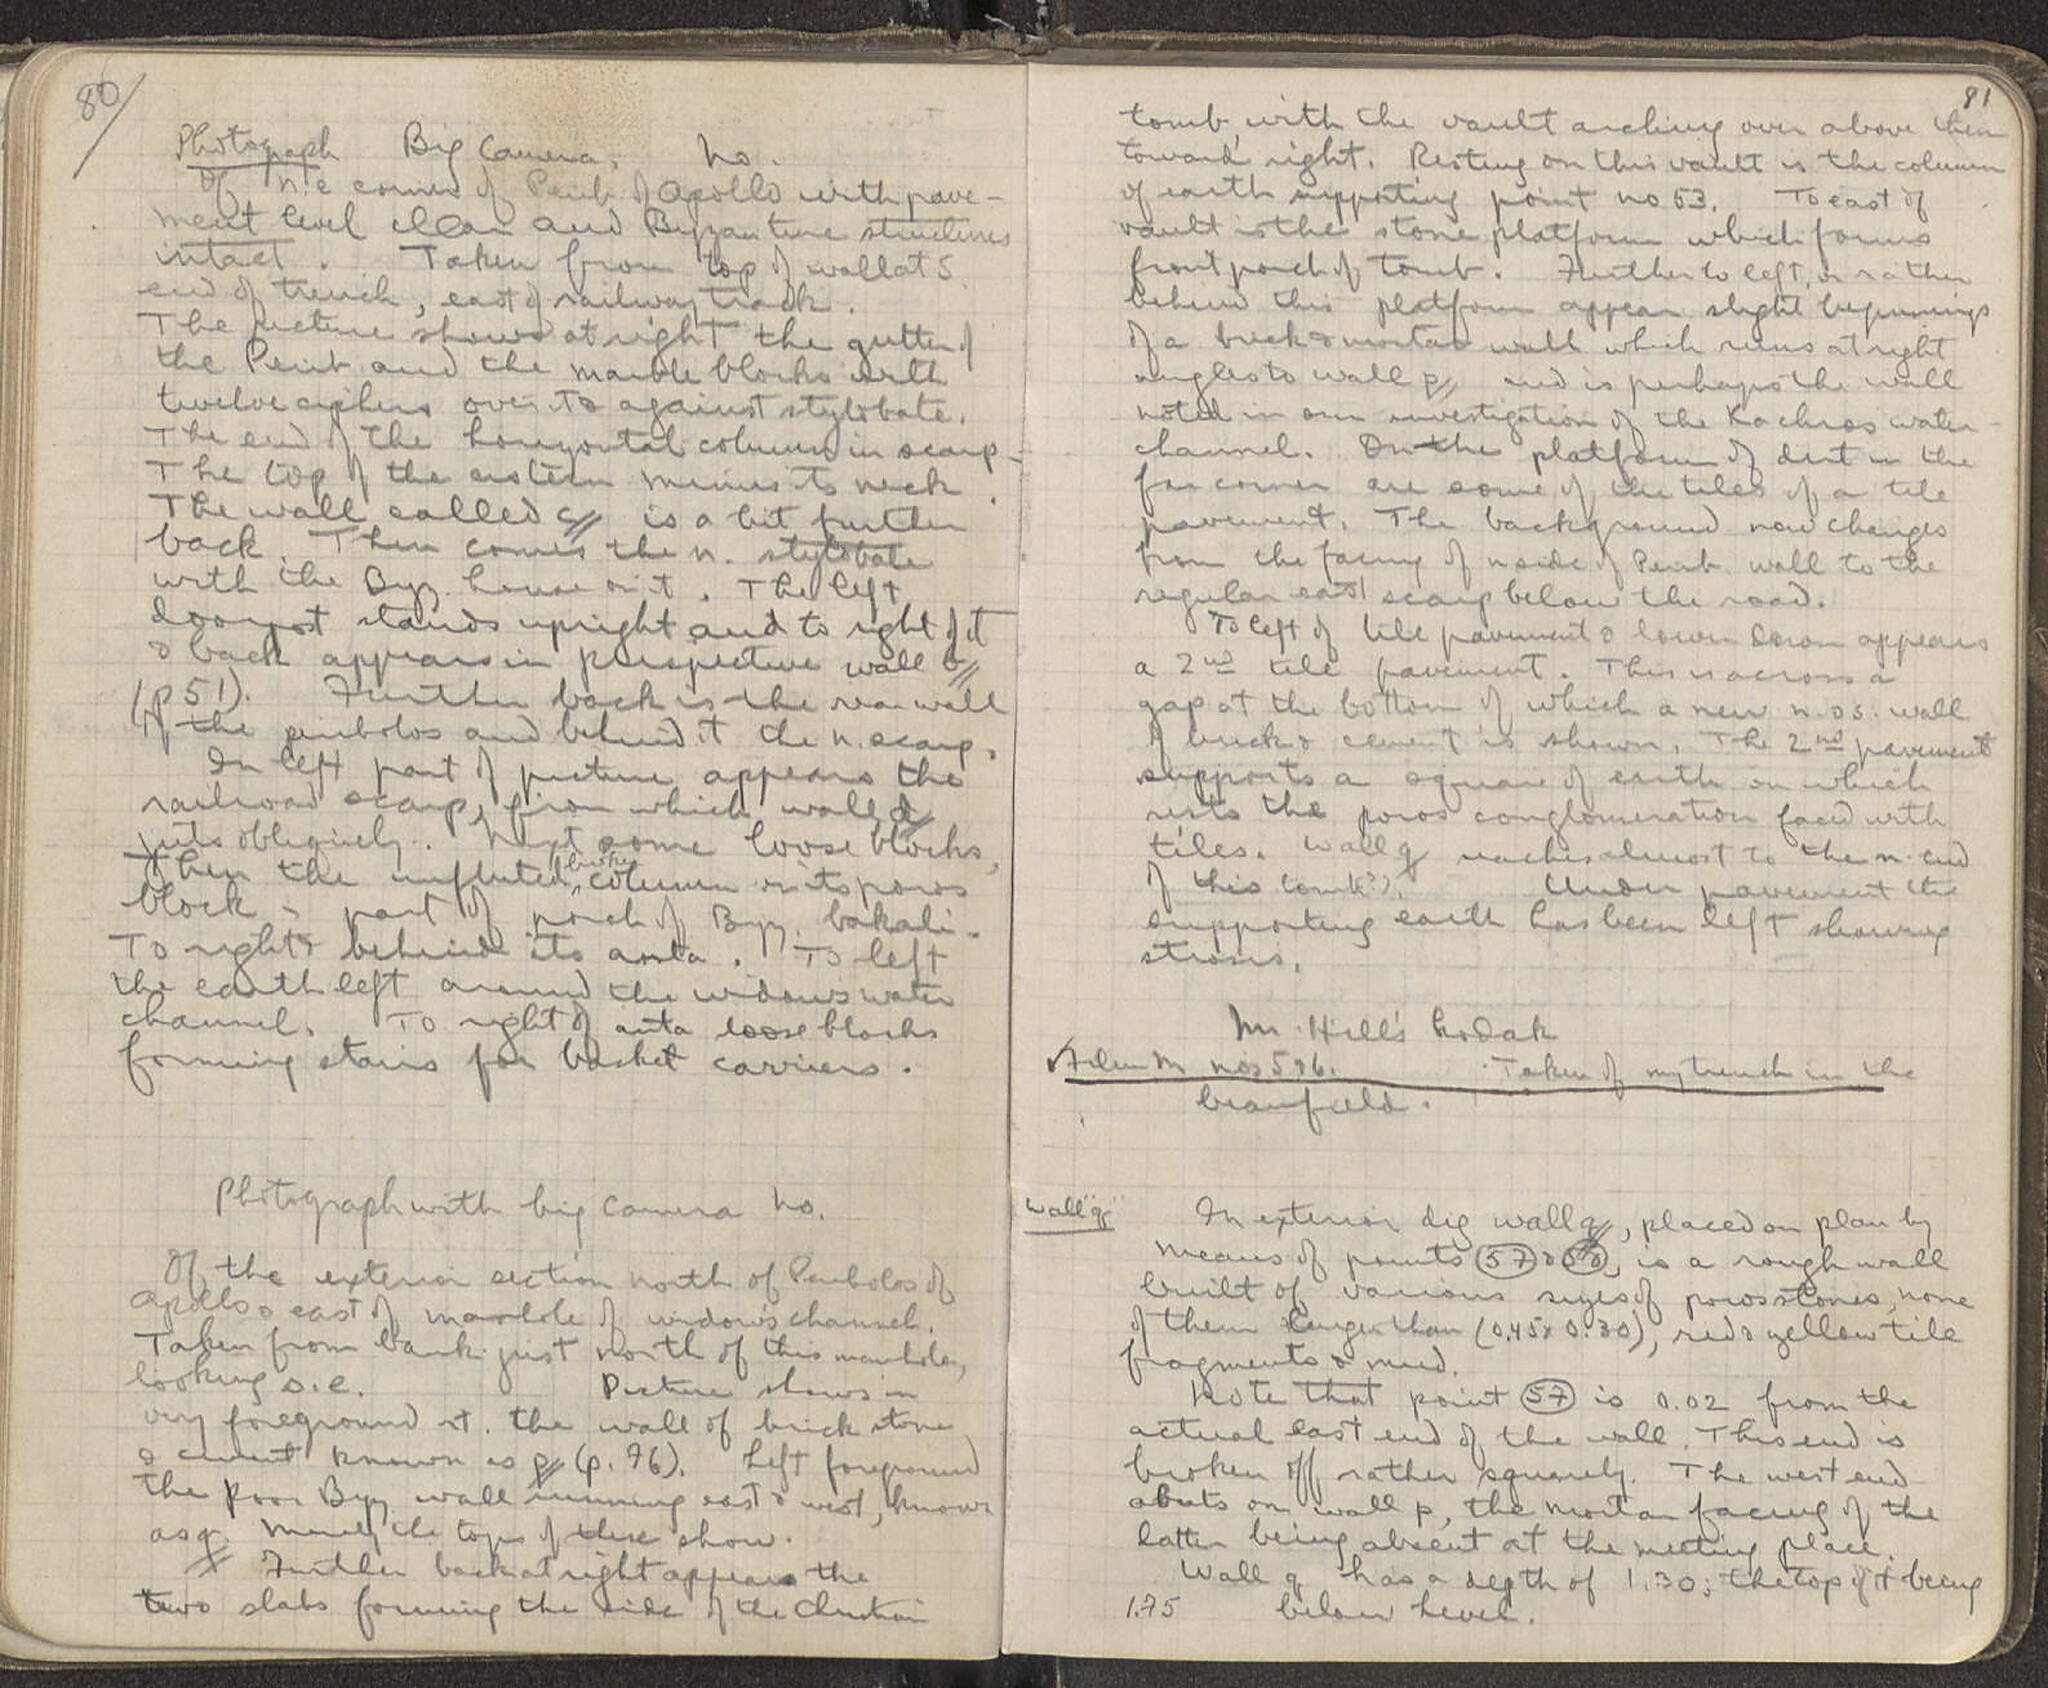 80
Photograph Big Camera, No.
Of n.e corner of Perib of Apollo with pave-
ment level clear and Byzantine structures
intact. Taken from top of wall at S.
end of trench, east of railway track.
The picture shows at right the gutter of
the Perib and the marble blocks with
twelve ciphers over to & against stylobate.
The end of the horizontal column in scarp.
The top of the eastern minus its neck.
The wall called c is a bit further
back. Then comes the n. stylobate
with the Byz. house on it. The left
doorpost stands upright and to right of it
& back appears in perspective wall b
(p 51). Further back is the rear wall
of the peribolos and behind it the n. scarp.
In left part of picture appears the
railroad scarp, from which wall d
juts obliquely. Next some loose blocks,
then the unfluted broken column on its poros
block - part of porch of Byz. bakali.
To right & behind its anta. To left
the earth left around the widow's water
channel. To right of anta loose blocks
forming stairs for basket carriers.
Photograph with big camera No.
Of the exterior section north of Peribolos of
Apollo & east of manhole of widow's channel.
Taken from bank just north of this manhole,
looking s.e. Picture shows in
very foreground rt. the wall of brick stone
& cement known as p (p. 76). Left foreground
the poor Byz wall running east & west, known
as q. Merely the tops of these show.
Further back at right appears the
two slabs forming the side of the Christian
81
tomb, with the vault arching over above them
toward right. Resting on this vault is the column
of earth supporting point no 53. To east of
vault is the stone platform which forms
front porch of tomb. Further to left, or rather
behind this platform appear slight beginnings
of a brick & mortar wall which runs at right
angles to wall p and is perhaps the wall
noted in our investigation of the Kachros water
channel. On the platform of dirt in the
far corner are some of the tiles of a tile
pavement. The background now changes
from the facing of n side of Perib. wall to the
regular east scarp below the road.
To left of tile pavement & lower down appears
a 2nd tile pavement. This is across a
gap at the bottom of which a new n. & s. wall
of brick & cement is shown. The 2nd pavement
supports a square of earth on which
rests the poros conglomeration faced with
tiles. Wall q reaches almost to the n. end
of this tomb(?). Under pavement the
supporting earth has been left showing
strosis.
Mr. Hill's Kodak
Film M nos 5 & 6. Taken of my trench in the
beanfield.
Wall "q" In exterior dig wall q, placed on plan by
means of points (57) & (58), is a rough wall
built of various sizes of poros stones, none
of them larger than (0.45 x 0.30), red & yellow tile
fragments & mud.
Note that point (57) is 0.02 from the
actual east end of the wall. This end is
broken off rather squarely. The west end
abuts on wall p, the mortar facing of the
latter being absent at the meeting place.
Wall q has a depth of 1.30; the top of it being
1.75 below level.